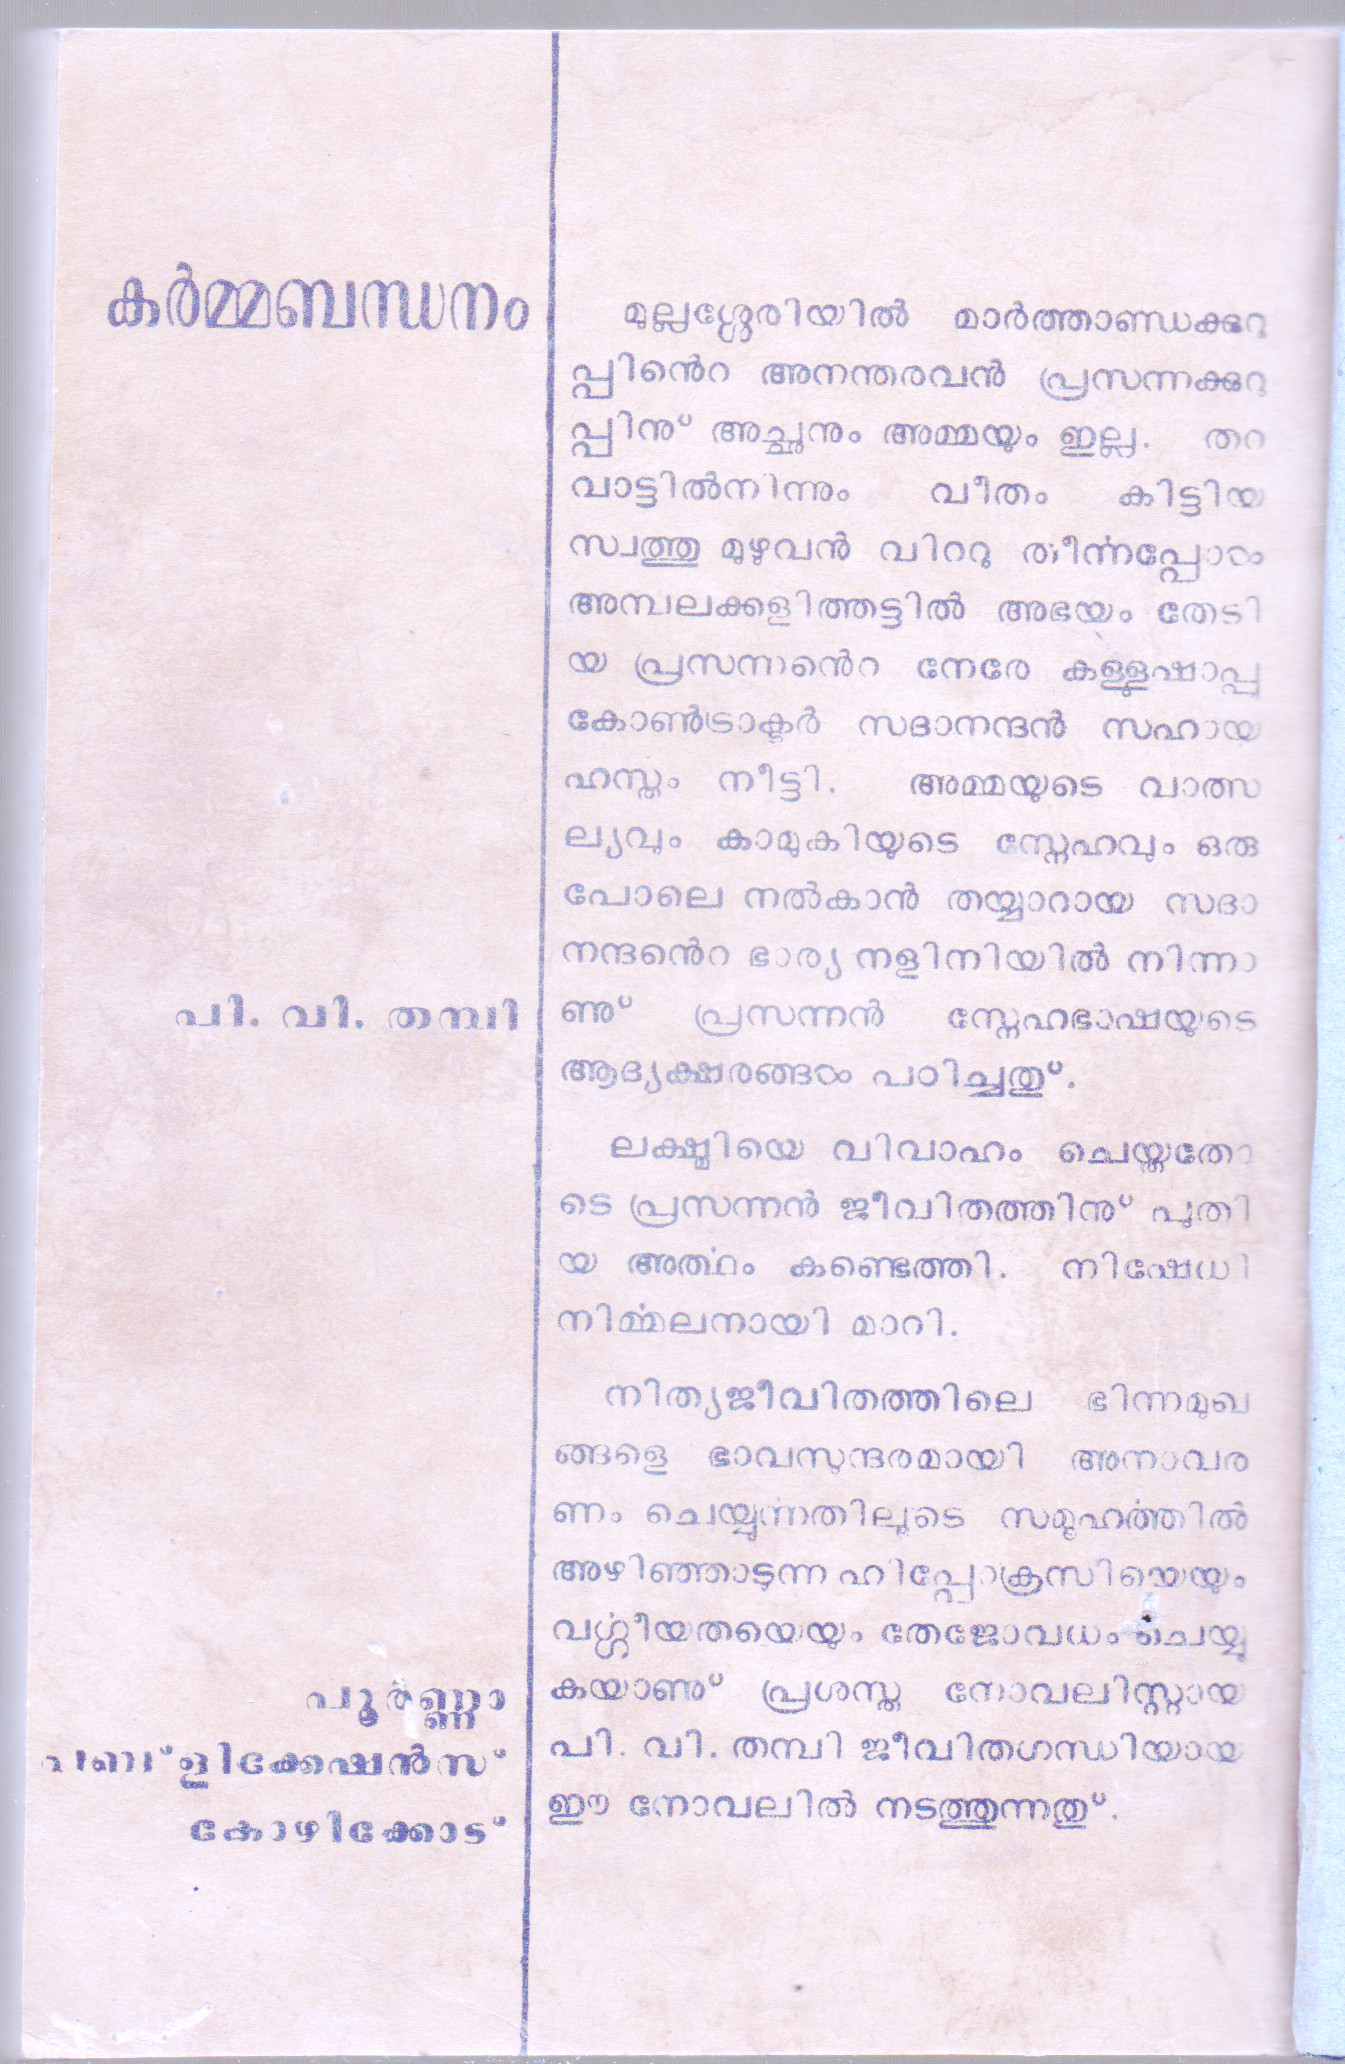 കർമ്മബന്ധനം
പി. വി. തമ്പി
പൂർണ്ണാ
പബ്ളിക്കേഷൻസ്
കോഴിക്കോട്
മുല്ലശ്ശേരിയിൽ മാർത്താണ്ഡക്കുറു
പ്പിൻെറ അനന്തരവൻ പ്രസന്നക്കുറു
പ്പിനു് അച്ഛനും അമ്മയും ഇല്ല. തറ
വാട്ടിൽനിന്നും വീതം കിട്ടിയ
സ്വത്തു മുഴുവൻ വിററു തീൎന്നപ്പോൾ
അമ്പലക്കളിത്തട്ടിൽ അഭയം തേടി
യ പ്രസന്നൻെറ നേരേ കള്ളുഷാപ്പു
കോൺട്രാക്ടർ സദാനന്ദൻ സഹായ
ഹസ്തം നീട്ടി. അമ്മയുടെ വാത്സ
ല്യവും കാമുകിയുടെ സ്നേഹവും ഒരു
പോലെ നൽകാൻ തയ്യാറായ സദാ
നന്ദൻെറ ഭാര്യ നളിനിയിൽ നിന്നാ
ണു് പ്രസന്നൻ സ്നേഹഭാഷയുടെ
ആദ്യക്ഷരങ്ങൾ പഠിച്ചതു്.
ലക്ഷ്മിയെ വിവാഹം ചെയ്തതോ
ടെ പ്രസന്നൻ ജീവിതത്തിനു് പുതി
യ അൎത്ഥം കണ്ടെത്തി. നിഷേധി
നിൎമ്മലനായി മാറി.
നിത്യജീവിതത്തിലെ ഭിന്നമുഖ
ങ്ങളെ ഭാവസുന്ദരമായി അനാവര
ണം ചെയ്യുന്നതിലൂടെ സമൂഹത്തിൽ
അഴിഞ്ഞാടുന്ന ഹിപ്പോക്രസിയെയും
വൎഗ്ഗീയതയെയും തേജോവധം ചെയ്യു
കയാണു് പ്രശസ്ത നോവലിസ്റ്റായ
പി. വി. തമ്പി ജീവിതഗന്ധിയായ
ഈ നോവലിൽ നടത്തുന്നതു്.